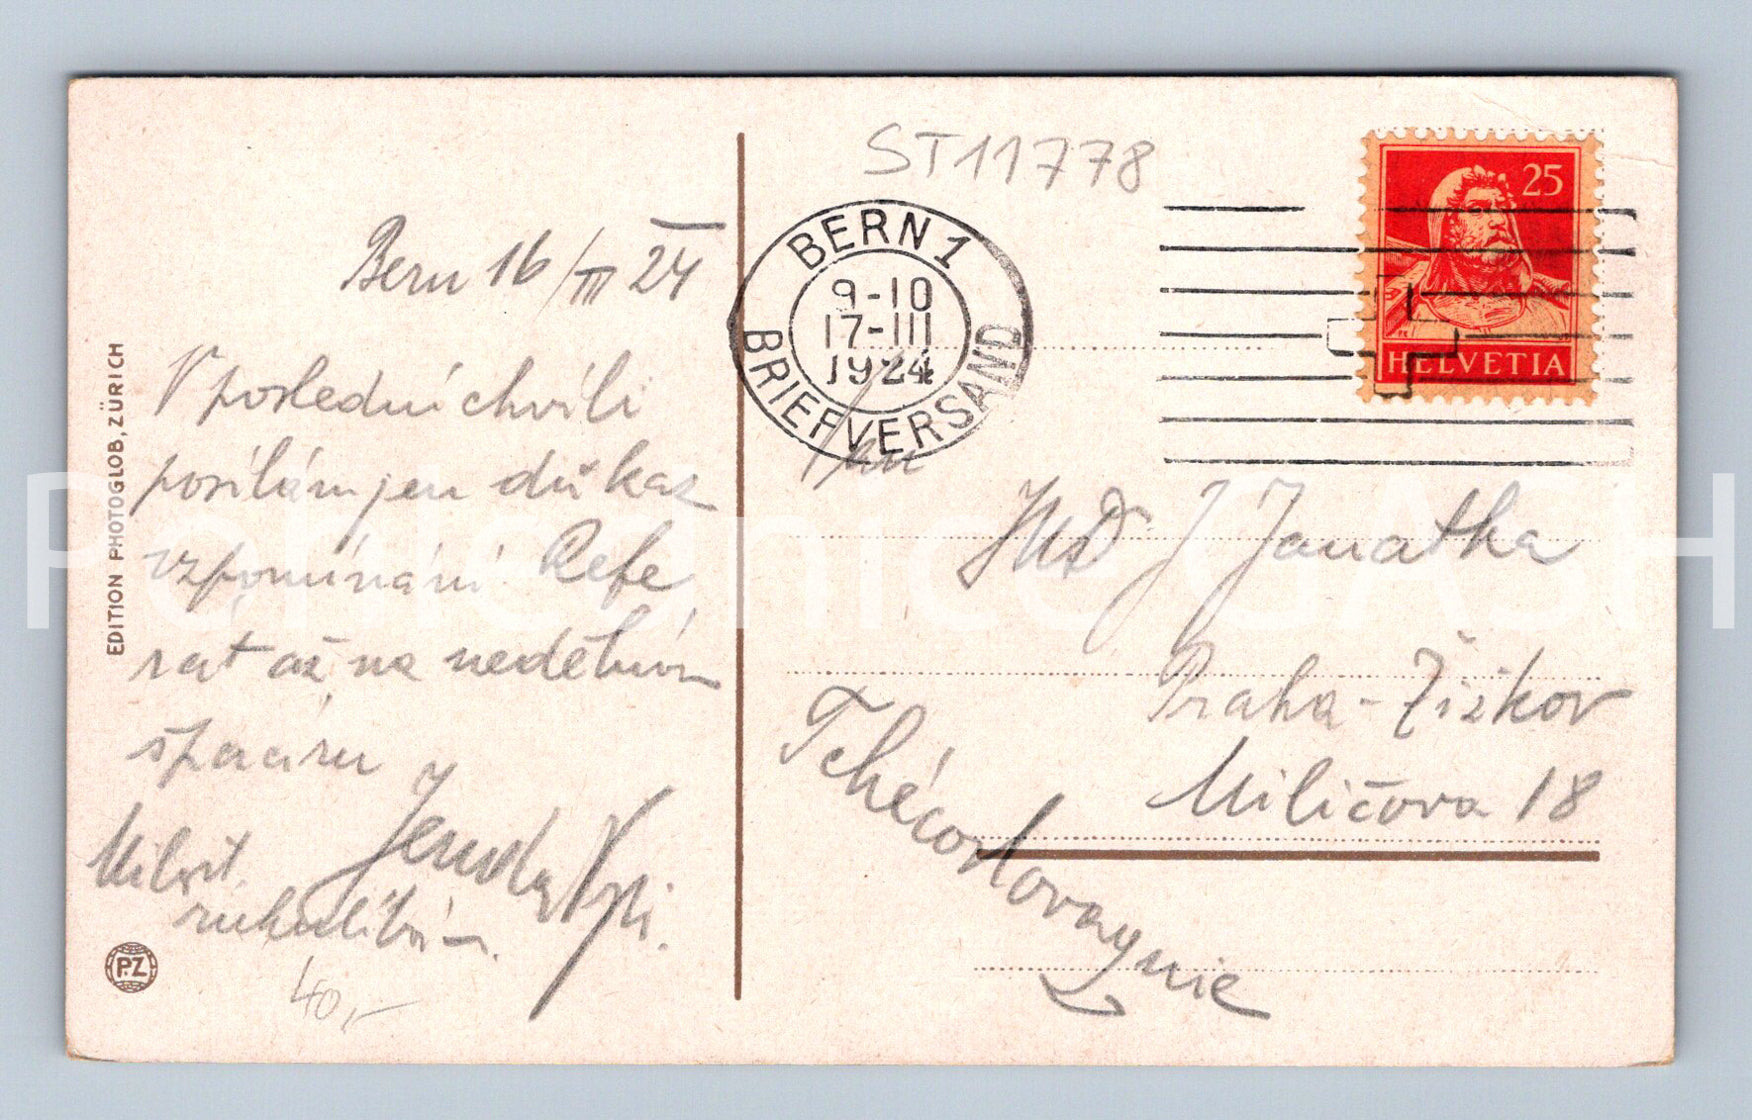 ST11778
Bern 16/III 24
V poslední chvíli
posílám jen důkaz
vzpomínání. Refe
rát až na nedělním
špacíru
Milost.
rukulíbám.
40,-
EDITION PHOTOGLOB, ZÜRICH
PZ
BERN 1
9-10
17-III
1924
BRIEFVERSAND
25
HELVETIA
Pan
J Janatka
Praha-Žižkov
Miličova 18
Tchécoslovaquie
Pohlednice SASH